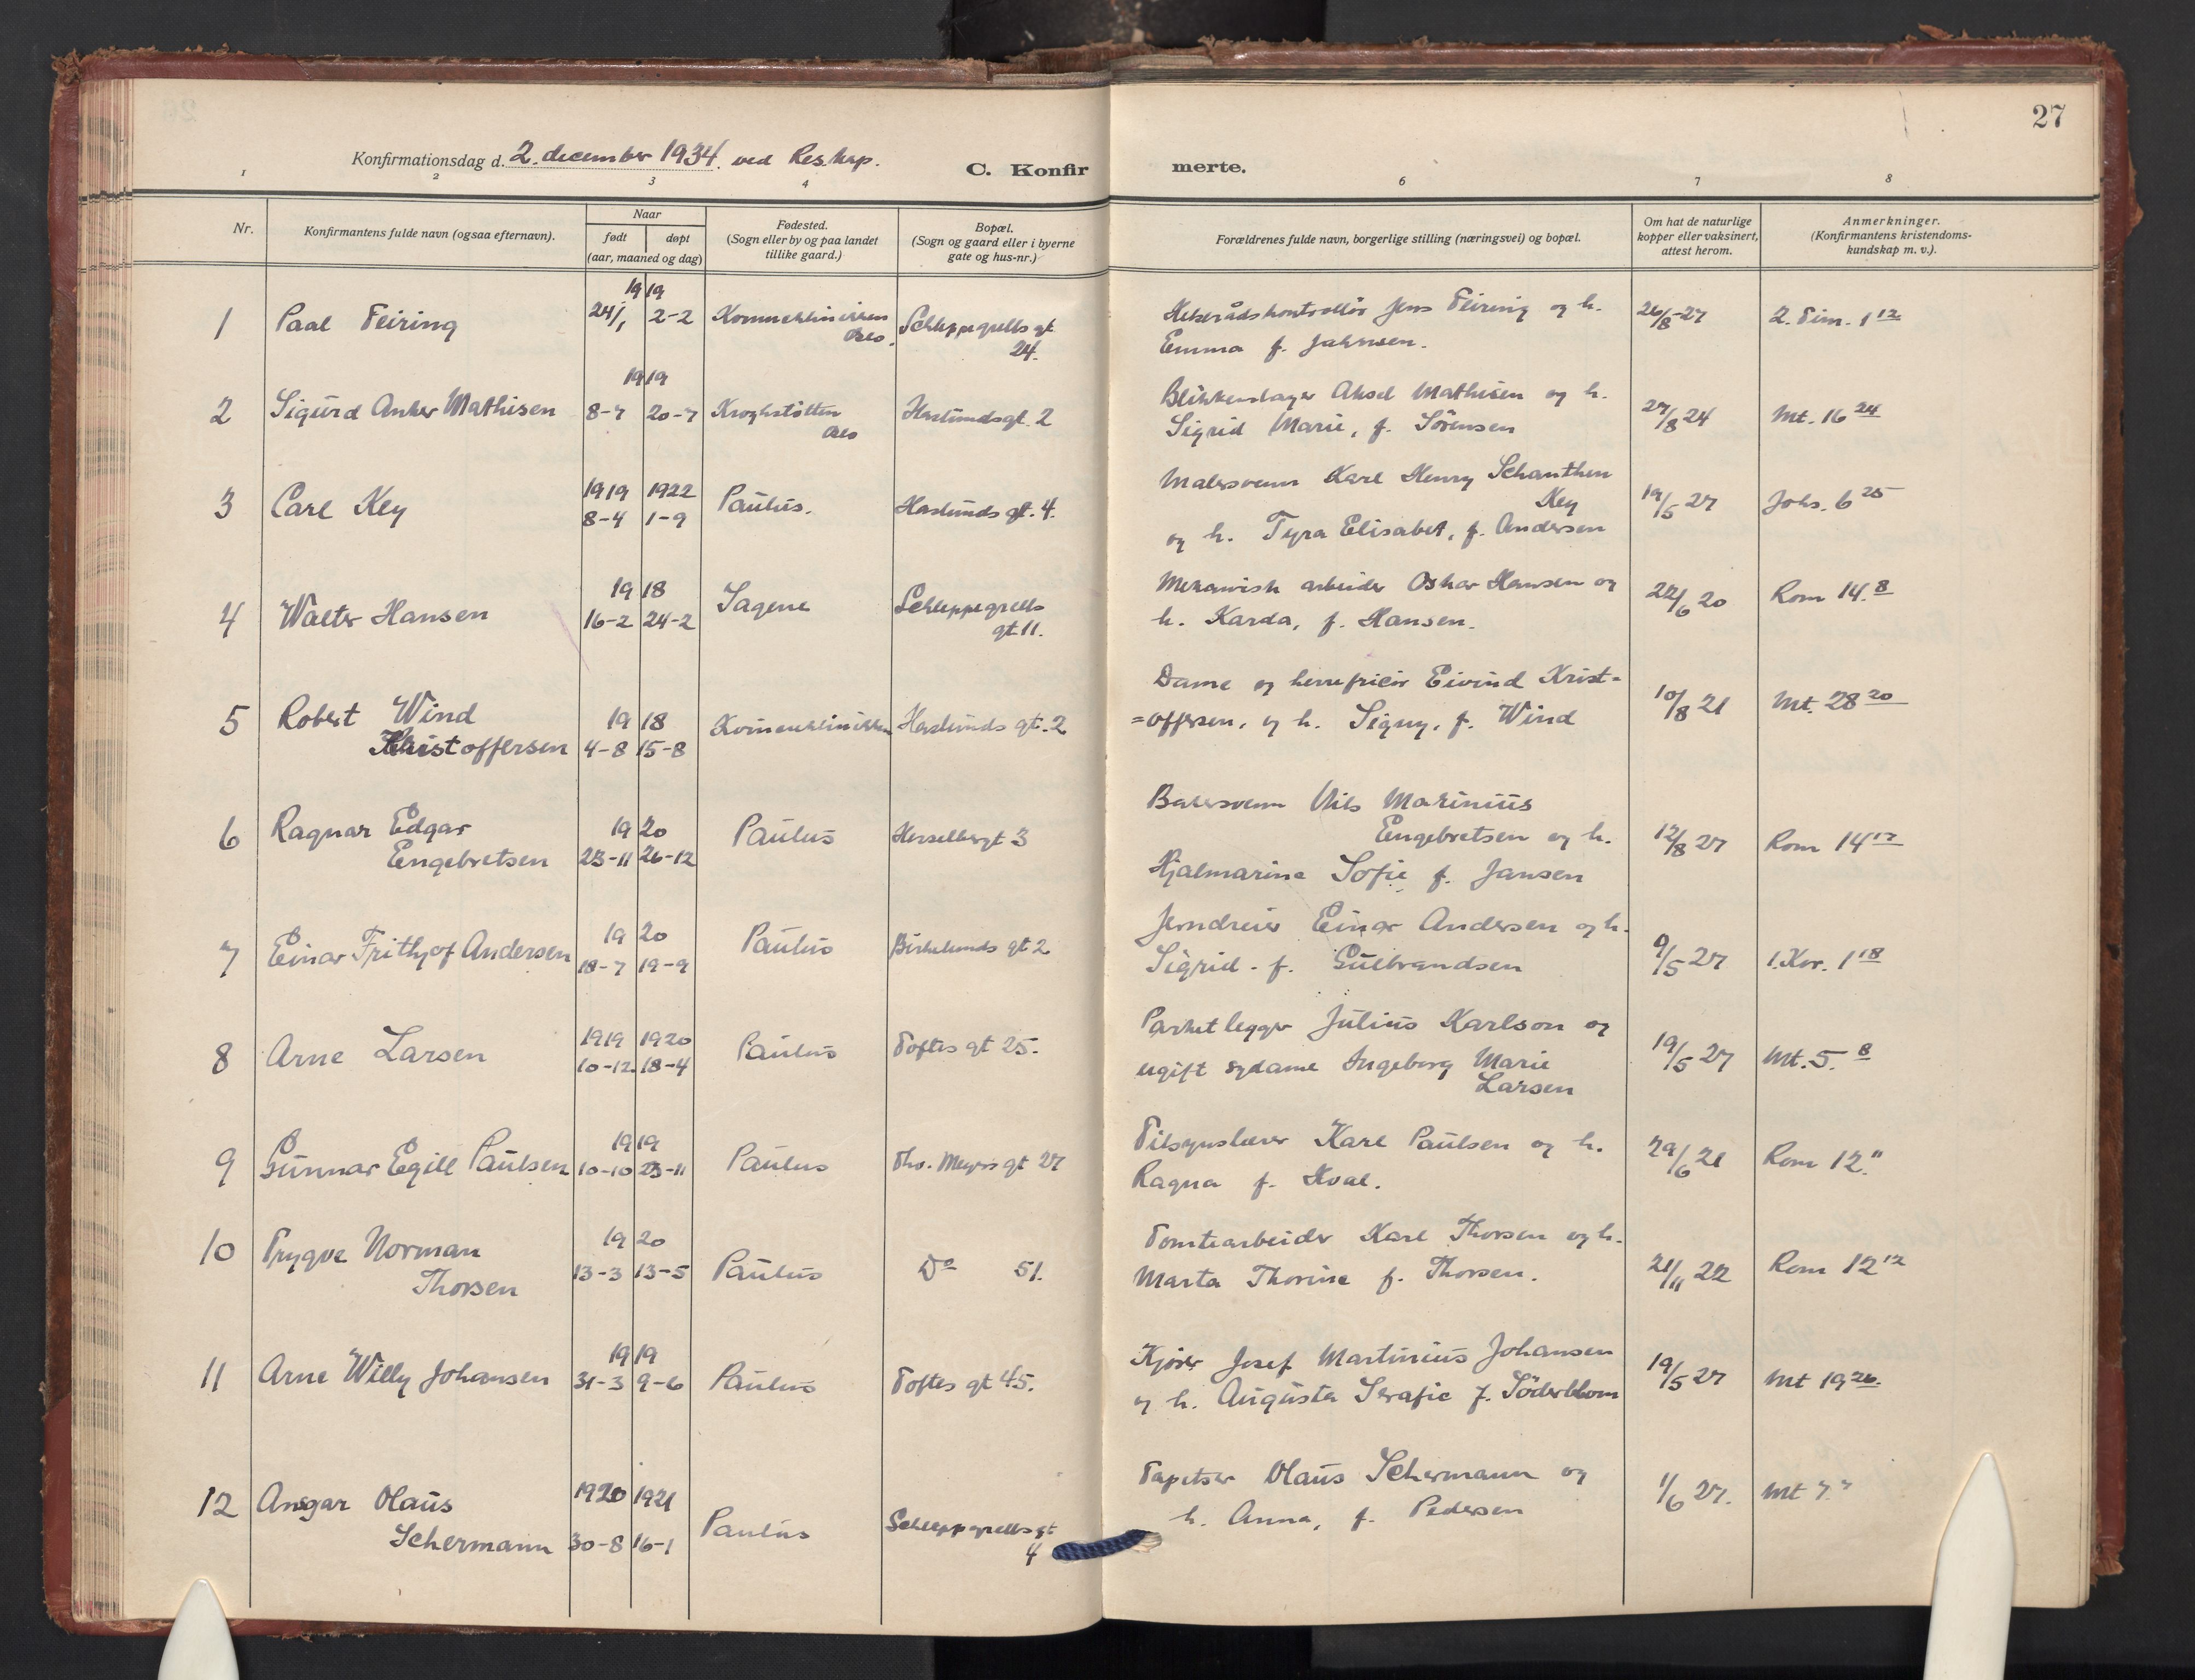 27
Konfirmationsdag d. 2. december 1934. ved Res.kap.
C. Konfir merte.
1 2 3 4 6 7 8
Nr.
Konfirmantens fulde navn (ogsaa efternavn).
Naar
født døpt
(aar, maaned og dag)
Fødested.
(Sogn eller by og paa landet
tillike gaard.)
Bopæl.
(Sogn og gaard eller i byerne
gate og hus-nr.)
Forældrenes fulde navn, borgerlige stilling (næringsvei) og bopæl.
Om hat de naturlige
kopper eller vaksinert,
attest herom.
Anmerkninger.
(Konfirmantens kristendoms-
kundskap m. v.).
1 Paal Feiring
19 19
24/1 2-2
Kvinneklinikken
Oslo.
Schleppegrells gt
24.
Jens Feiring og h.
Emma f. Jahnsen.
26/8-27
2. Tim. 1 12
2 Sigurd Anker Mathisen
19 19
8-7 20-7
Kroghstøtten
Oslo
Haslunds gt. 2
Blikkenslager Aksel Mathisen og h.
Sigrid Marie, f. Sörensen
27/8 24
Mt. 16 24
3 Carl Key
1919 1922
8-4 1-9
Paulus.
Haslunds gt. 4.
Malersvenn Karl Henry Schanthen
Key
og h. Tyra Elisabet, f. Andersen
19/5 27
Johs. 6 25
4 Walter Hansen
19 18
16-2 24-2
Sagene
Schleppegrells
gt 11.
Mekanisk arbeider Oskar Hansen og
h. Karda, f. Hansen.
22/6 20
Rom 14. 8
5 Robert Wind
Kristoffersen
19 18
4-8 15-8
Kvinneklinikken
Haslunds gt. 2
Dame og herrefrisör Eivind Krist=
=offersen, og h. Signy, f. Wind
10/8 21
Mt. 28 20
6 Ragnar Edgar
Engebretsen
19 20
23-11 26-12
Paulus
Herslebsgt 3
Bakersvenn Nils Marinius
Engebretsen og h.
Hjalmarine Sofie f. Jansen
12/8 27
Rom 14 17
7 Einar Frithjof Andersen
19 20
18-7 19-9
Paulus
Birkelunds gt 2
Jerndreier Einar Andersen og h.
Sigrid. f. Gulbrandsen
9/5 27
1. Kor. 1 18
8 Arne Larsen
1919 1920
10-12. 18-4
Paulus
Toftes gt 25.
Parketlegger Julius Karlson og
ugift sydame Ingeborg Marie
Larsen
19/5 27
Mt. 5. 8
9 Gunnar Egill Paulsen
19 19
10-10 23-11
Paulus
Thv. Meyers gt 27
Tilsynslærer Karl Paulsen og h.
Ragna f. Hval.
29/6 21
Rom 12. 11
10 Trygve Norman
Thorsen
19 20
13-3 13-5
Paulus
Do 51.
Tomtearbeider Karl Thorsen og h.
Marta Thorine f. Thorsen.
21/11 22
Rom 12 12
11 Arne Willy Johansen
19 19
31-3 9-6
Paulus
Toftes gt 45.
Kjörer Josef Martinius Johansen
og h. Augusta Serafie f. Söderblom
19/5 27
Mt 19 26.
12 Ansgar Olaus
Schermann
1920 1921
30-8 16-1
Paulus
Schleppegrells gt
4
Tapetser Olaus Schermann og
h. Anna, f. Pedersen
1/6 27.
Mt 7. 7